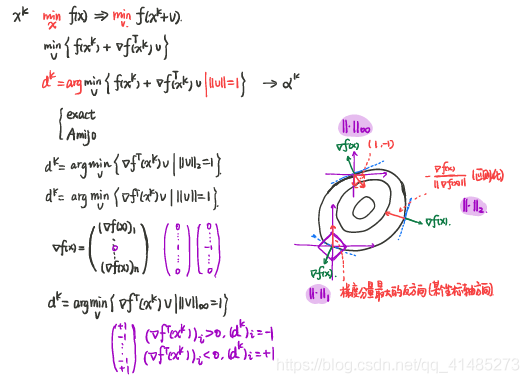 x^k min_x f(x) ⇒ min_v f(x^k+v).
min_v { f(x^k) + ∇f^T(x^k) v }
d^k = arg min_v { f(x^k) + ∇f^T(x^k) v | ||v||=1 } → α^k
{ exact
Amijo
d^k = arg min_v { ∇f^T(x^k) v | ||v||_2=1 }.
d^k = arg min_v { ∇f^T(x^k) v | ||v||=1 }.
∇f(x) = ( (∇f(x))_1 ⋮ 0 ⋮ (∇f(x))_n ) ( 0 ⋮ 1 ⋮ 0 ) ( 0 ⋮ -1 ⋮ 0 )
d^k = arg min_v { ∇f^T(x^k) v | ||v||_∞=1 }
( +1 -1 ⋮ -1 +1 ) (∇f^T(x^k))_i > 0, (d^k)_i = -1
(∇f^T(x^k))_i < 0, (d^k)_i = +1
||·||_∞
∇f(x) (1,-1)
- ∇f(x) / ||∇f(x)||
||·||_2
∇f(x).
∇f(x)
||·||_1 梯度分量最大的反方向(某个坐标轴方向)
https://blog.csdn.net/qq_41485273